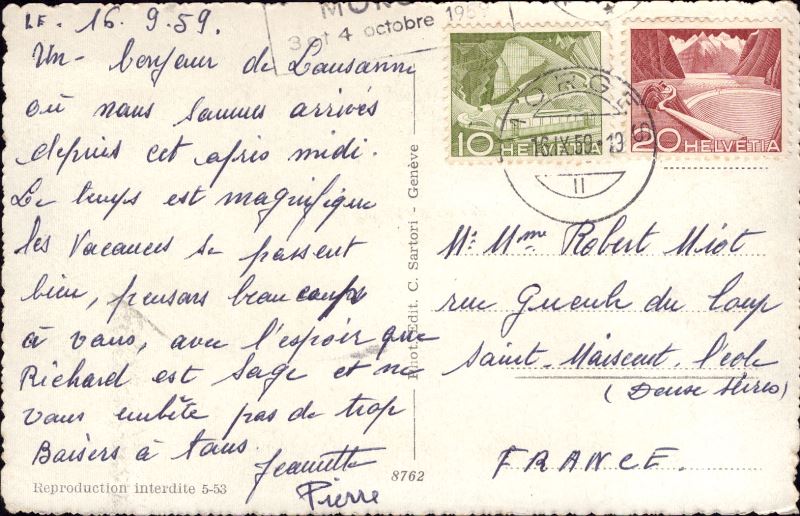 LE. 16.9.59.
Un bonjour de Lausanne
où nous sommes arrivés
depuis cet après midi.
Le temps est magnifique
les vacances se passent
bien, pensons beaucoup
à vous, avec l'espoir que
Richard est sage et ne
vous embête pas de trop
Baisers à tous.
Jeannette
Pierre
Reproduction interdite 5-53
8762
Phot. Edit. C. Sartori - Genève
3 et 4 octobre 1959
10 HELVETIA
20 HELVETIA
MORGES
16.IX.59.-19
II
Mr Mme Robert Miot
rue Gueule du Loup
Saint-Maixent l'école
(Deux Sèvres)
FRANCE.